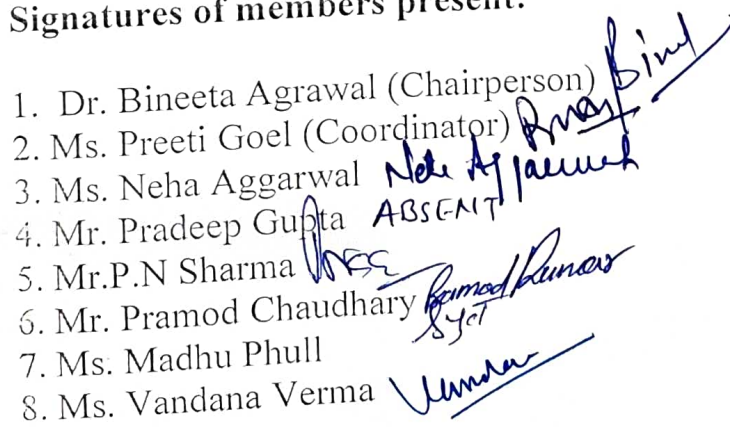 Signatures of members present:
1. Dr. Bineeta Agrawal (Chairperson)
2. Ms. Preeti Goel (Coordinator)
3. Ms. Neha Aggarwal Neha Aggarwal
4. Mr. Pradeep Gupta ABSENT
5. Mr.P.N Sharma
6. Mr. Pramod Chaudhary Pramod Kumar
7. Ms. Madhu Phull
8. Ms. Vandana Verma Vandana